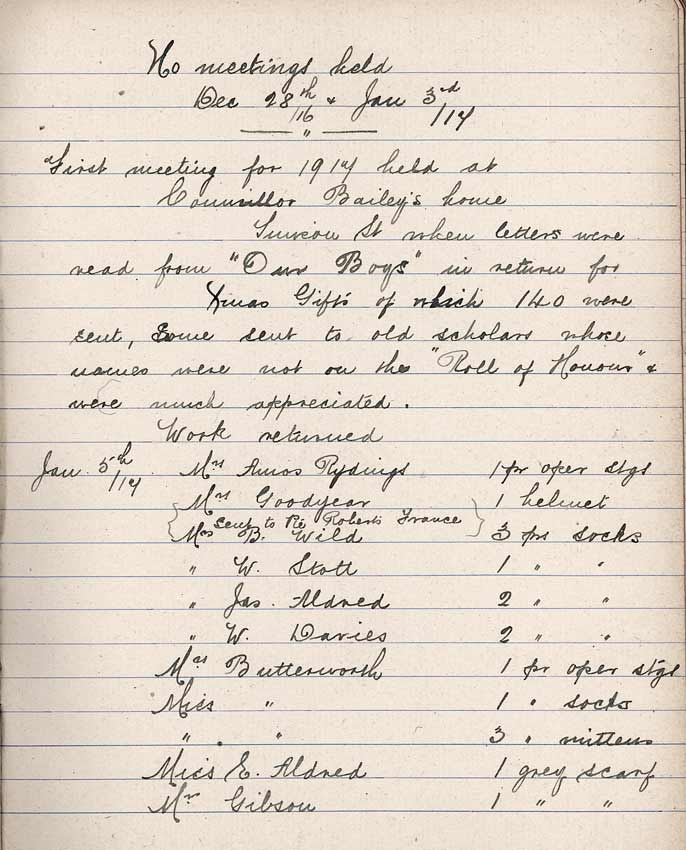 No meetings held
Dec 28th/16 & Jan 3rd/17
"
First meeting for 1917 held at
Councillor Bailey's home
Simeon St when letters were
read from "Our Boys" in return for
Xmas Gifts of which 140 were
sent, Some sent to old scholars whose
names were not on the "Roll of Honour" &
were much appreciated.
Work returned
Jan 5th/17 Mrs Amos Rydings 1 pr oper stgs
Mrs Goodyear 1 helmet
{sent to Pte Roberts France}
Mrs B. Wild 3 prs socks
" W. Stott 1 " "
" Jas. Aldred 2 " "
" W. Davies 2 " "
Mrs Butterworth 1 pr oper stgs
Miss " 1 " socks
" " 3 " mittens
Miss E. Aldred 1 grey scarf
Mrs Gibson 1 " "